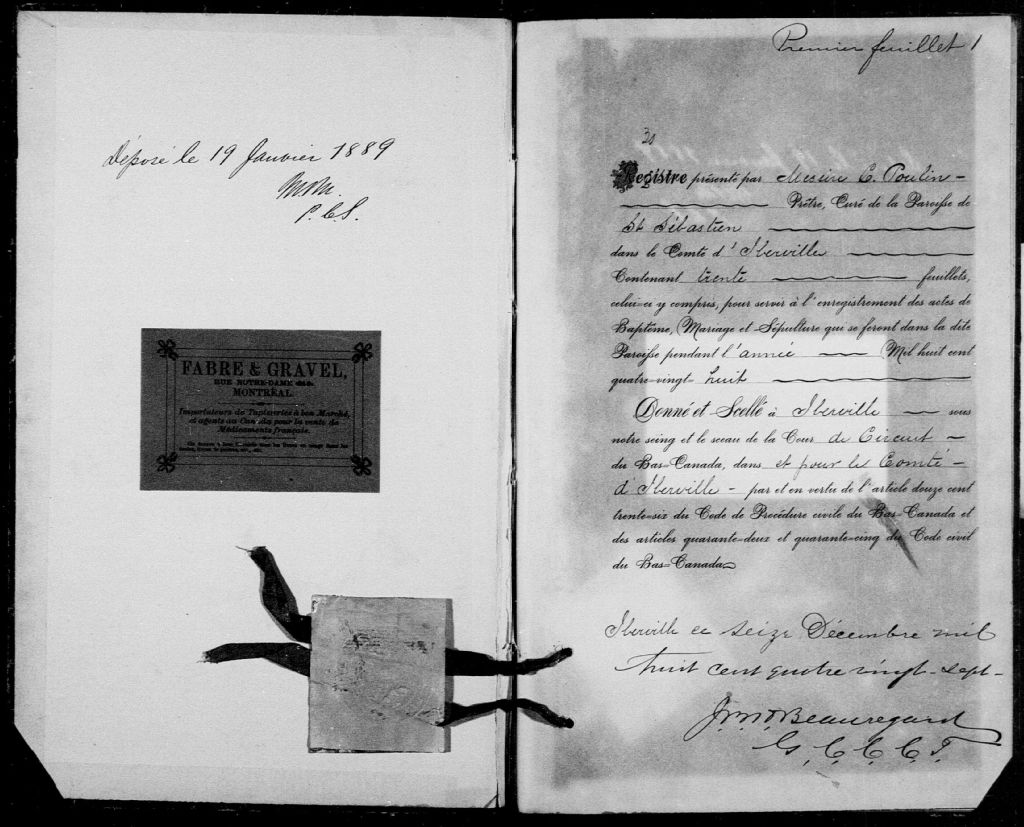 Déposé le 19 Janvier 1889
P.C.S.
FABRE & GRAVEL,
RUE NOTRE-DAME
MONTRÉAL
Importateurs de Tapisseries à bon Marché,
et agents au Canada pour la vente de
Médicaments français.
Premier feuillet 1
30
Registre présenté par Messire C. Poulin
Prêtre, Curé de la Paroisse de
St Sébastien
dans le Comté d'Iberville
Contenant trente feuillets,
celui-ci y compris, pour servir à l'enregistrement des actes de
Baptême, Mariage et Sépulture qui se feront dans la dite
Paroisse pendant l'année Mil huit cent
quatre-vingt-huit
Donné et Scellé à Iberville sous
notre seing et le sceau de la Cour de Circuit
du Bas-Canada, dans et pour le Comté
d'Iberville par et en vertu de l'article douze cent
trente-six du Code de Procédure civile du Bas-Canada et
des articles quarante-deux et quarante-cinq du Code civil
du Bas-Canada
Iberville ce seize Décembre mil
huit cent quatre vingt-sept-
Beauregard
G.C.C.C.I.